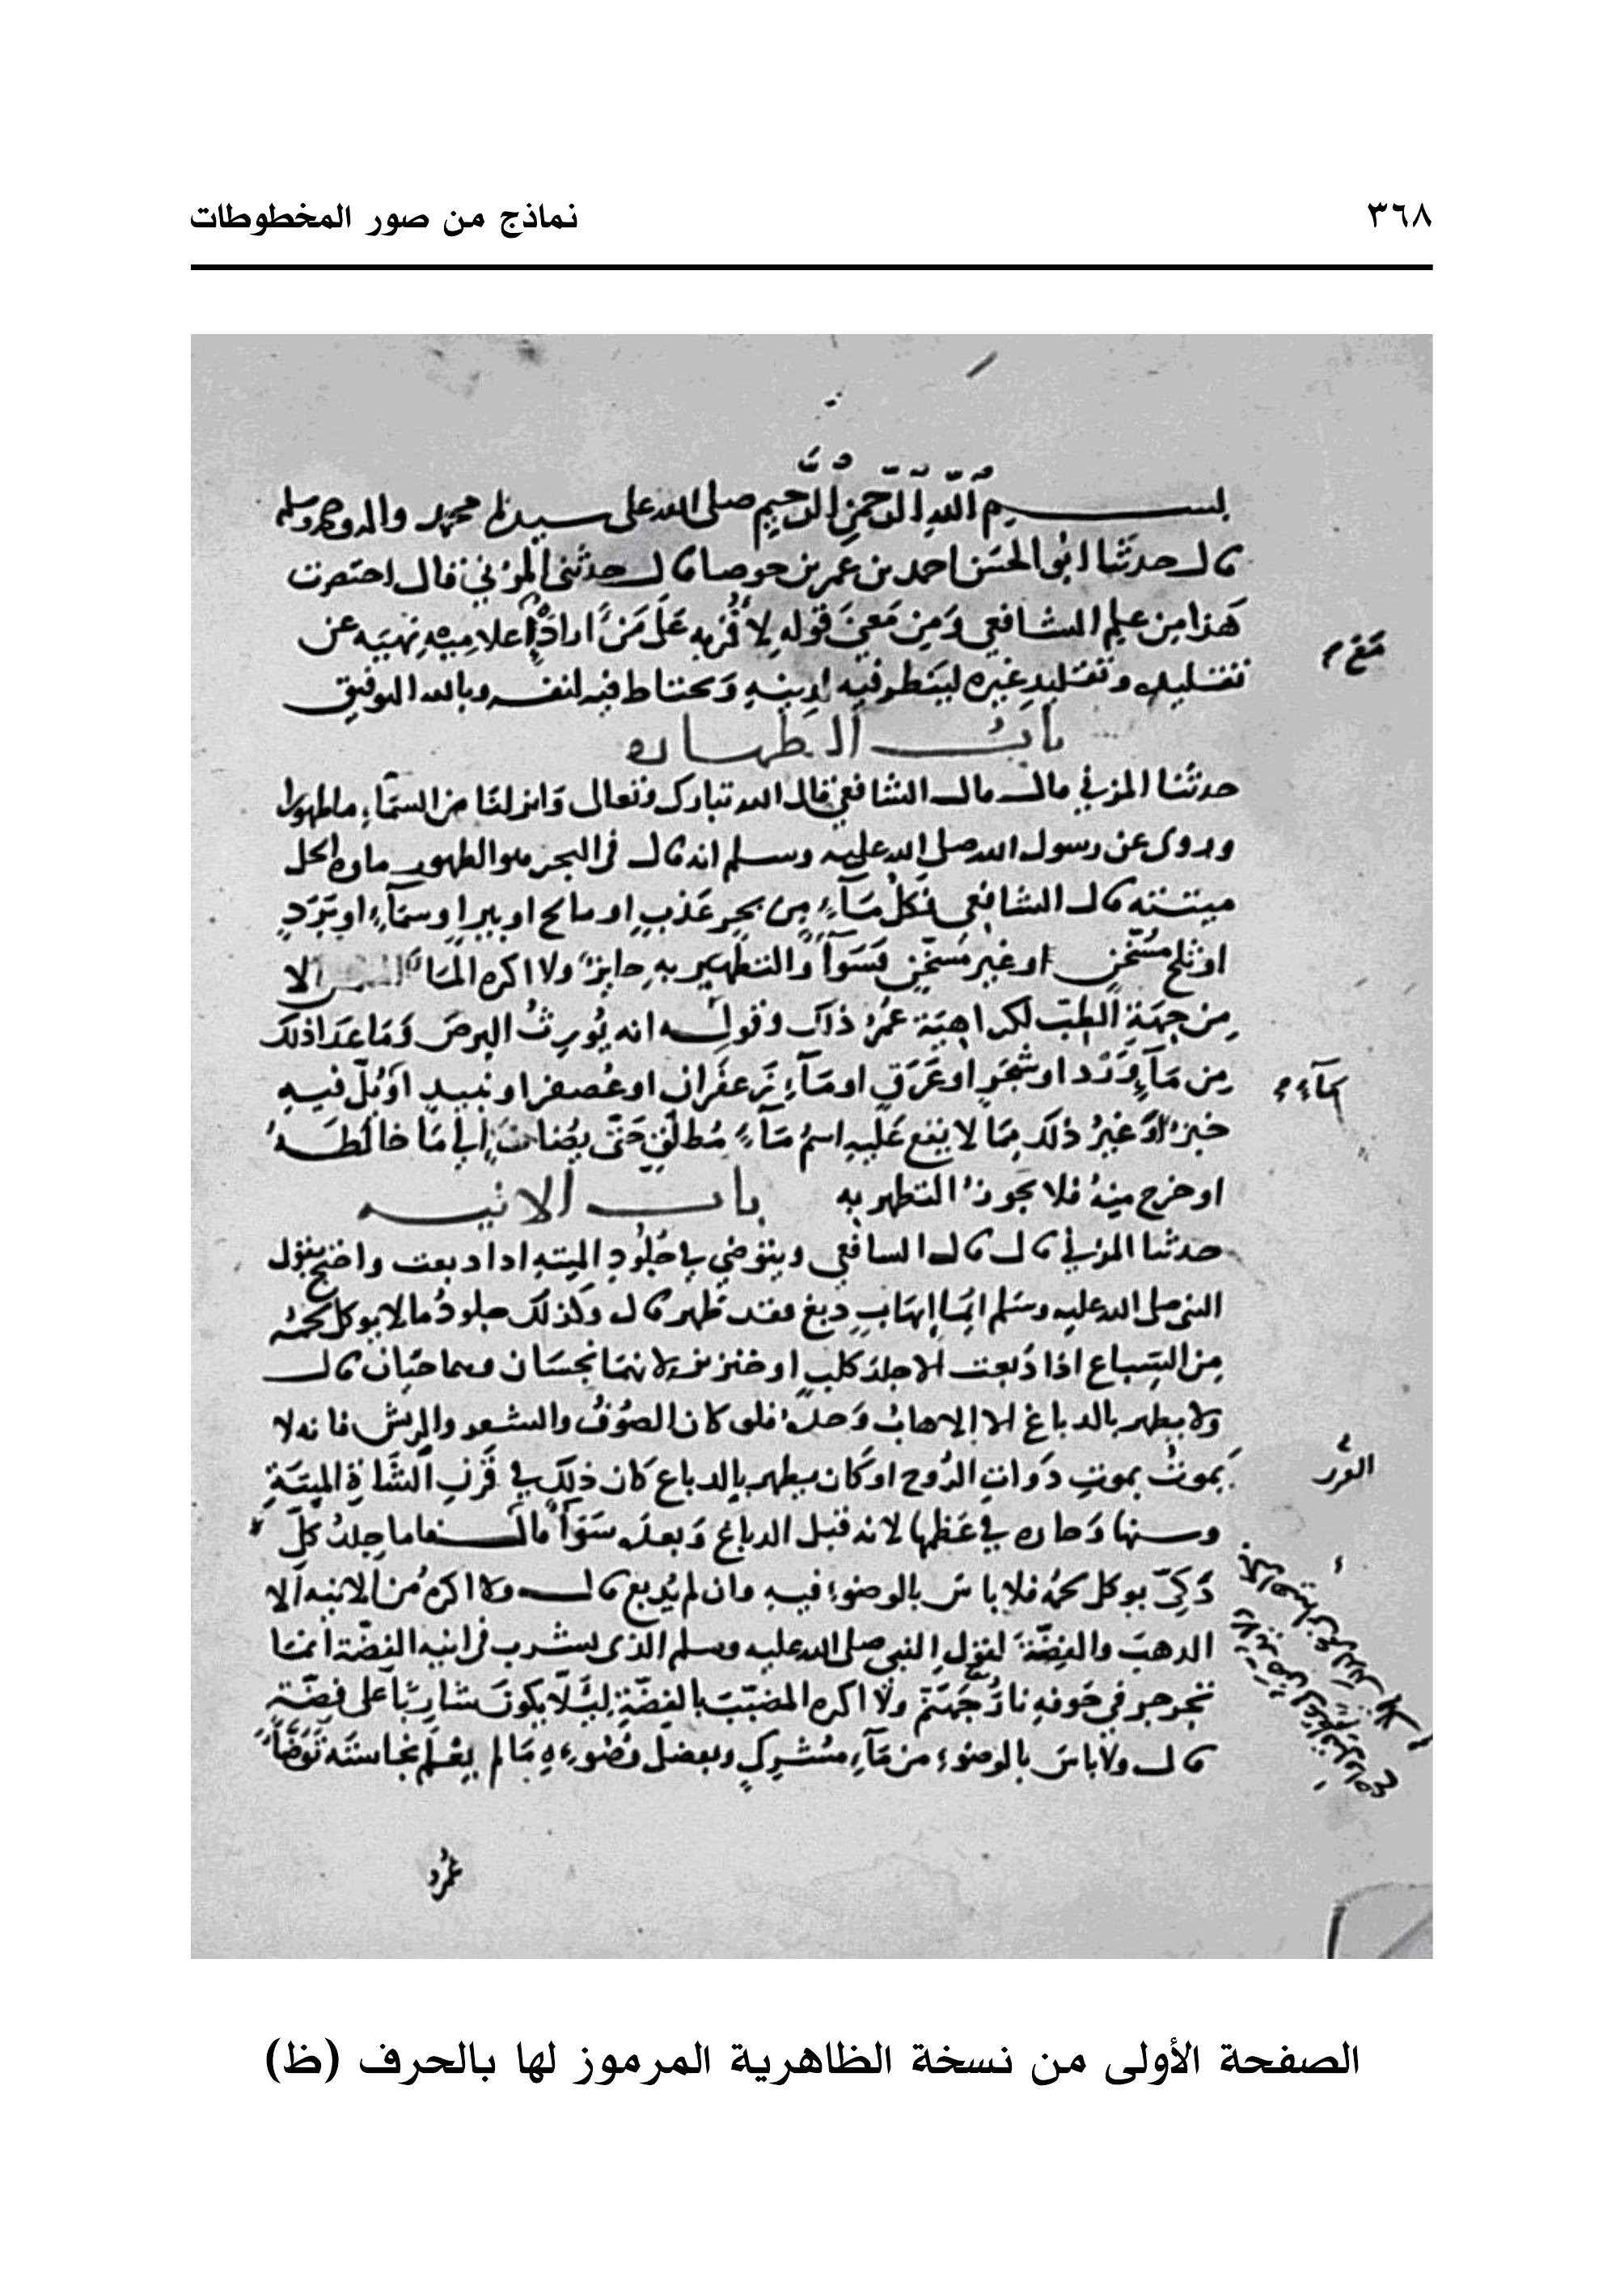 ٣٦٨
نماذج من صور المخطوطات
بســـم الله الرحمن الرحيم صلى الله على سيدنا محمد واله وصحبه وسلم
قال حدثنا ابو الحسن احمد بن عمر بن جوصا قال حدثنى المزني قال اختصرت
هذا من علم الشافعي ومن معنى قوله لاقربه على من اراده مع اعلاميه نهيه عن
تقليده وتقليد غيره لينظر فيه لدينه ويحتاط فيه لنفسه وبالله التوفيق
باب الطهاره
حدثنا المزني قال قال الشافعي قال الله تبارك وتعالى وانزلنا من السماء ماء طهورا
وروى عن رسول الله صلى الله عليه وسلم انه قال فى البحر هو الطهور ماوه الحل
ميتته قال الشافعي فكل ماء من بحر عذب او مالح او بير او سماء او برد
او ثلج مسخن او غير مسخن فسوا والتطهير به جايز ولا اكره الما المشمس الا
من جهة الطب لكراهية عمر ذلك وقوله انه يورث البرص وما عدا ذلك
من ماء ورد او شجر او عرق او ماء زعفران او عصفر او نبيد او بل فيه
خبز او غير ذلك مما لا يقع عليه اسم ماء مطلق حتى يضاف الى ما خالطه
او خرج منه فلا يجوز التطهر به باب الانيه
حدثنا المزني قال قال الشافعي ويتوضي في جلود الميته اذا دبغت واحتج بقول
النبي صلى الله عليه وسلم ايما اهاب دبغ فقد طهر قال وكذلك جلود ما لا يوكل لحمه
من السباع اذا دبغت الا جلد كلب او خنزير لانهما نجسان وهما حيان قال
ولا يطهر بالدباغ الا الاهاب وحده فلو كان الصوف والشعر والريش فانه لا
يموت بموت ذوات الروح او كان يطهر بالدباغ كان ذلك في قرن الشاة الميتة
وسنها وجاز في عظمها لانه قبل الدباغ وبعده سوا قال فاما جلد كل
ذكي يوكل لحمه فلا باس بالوضوء فيه وان لم يدبغ قال ولا اكره من الانيه الا
الذهب والفضة لقول النبي صلى الله عليه وسلم الذى يشرب فى انيه الفضة انما
يجرجر في جوفه نار جهنم ولا اكره المضبب بالفضة ليلا يكون شاربا على فضة
قال ولا باس بالوضوء من ماء مشرك وبفضل وضوءه ما لم يعلم نجاسته توضا
عمر
الصفحة الأولى من نسخة الظاهرية المرموز لها بالحرف (ظ)